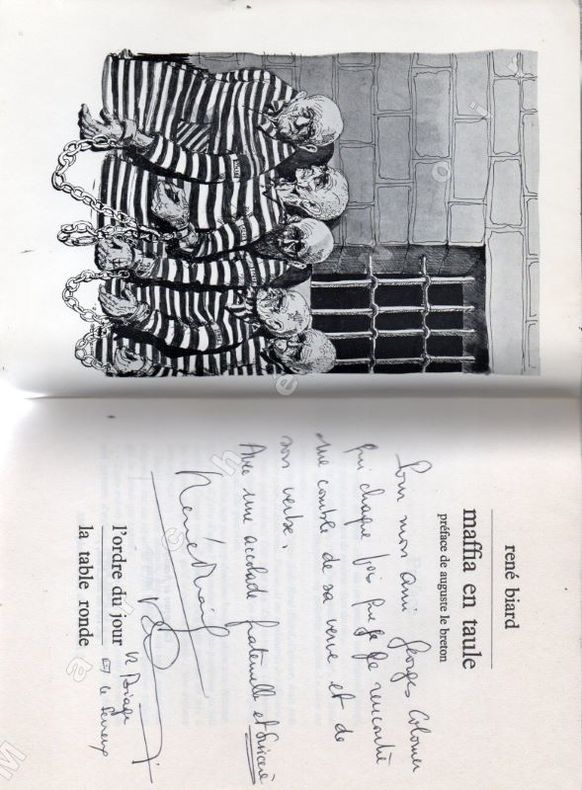 rené biard
maffia en taule
préface de auguste le breton
Pour mon ami Georges Colomer
qui chaque fois que je le rencontre
me comble de sa verve et de
son verbe.
Avec une accolade fraternelle et sincère
René Biard
l'ordre du jour
la table ronde